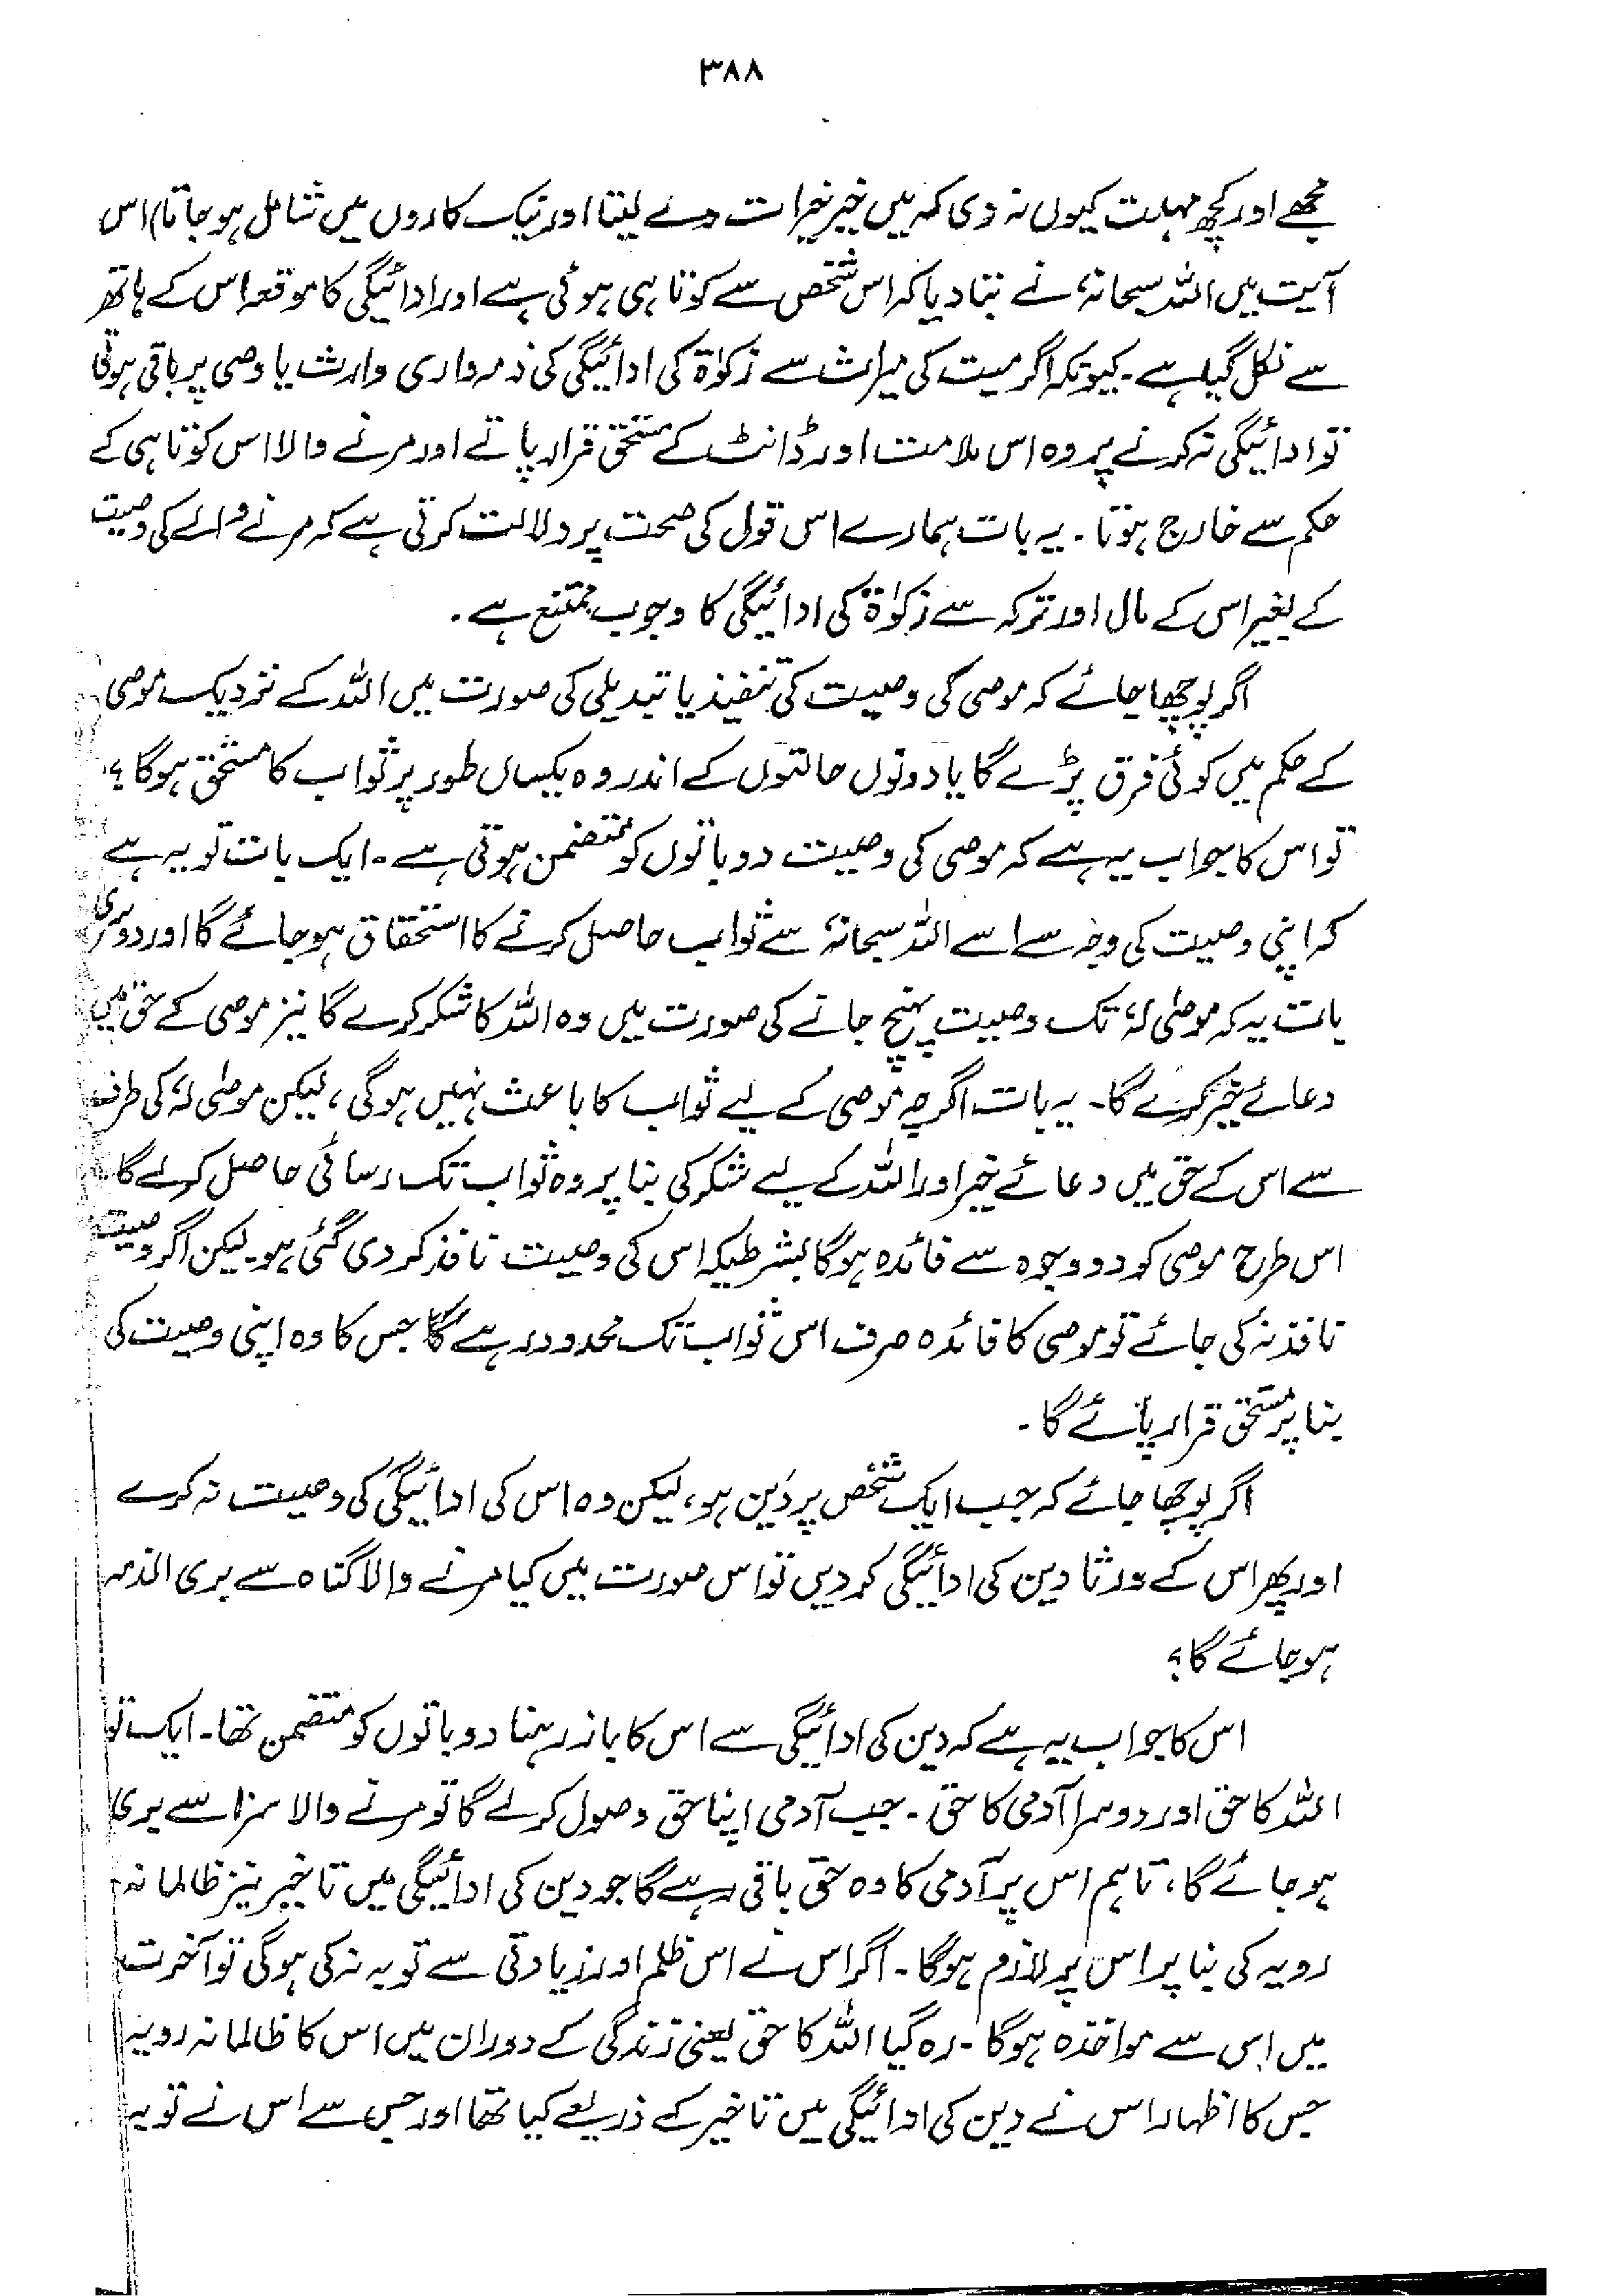 ۳۸۸
مجھے اور کچھ مہلت کیوں نہ دی کہ میں خیر خیرات دے لیتا اور نیک کاروں میں شامل ہو جاتا) اس
آیت میں اللہ سبحانہٗ نے بتا دیا کہ اس شخص سے کوتاہی ہوئی ہے اور ادائیگی کا موقعہ اس کے ہاتھ
سے نکل گیا ہے۔ کیونکہ اگر میت کی میراث سے زکوٰۃ کی ادائیگی کی ذمہ داری وارث یا وصی پر باقی ہوتی
تو ادائیگی نہ کرنے پر وہ اس ملامت اور ڈانٹ کے مستحق قرار پاتے اور مرنے والا اس کوتاہی کے
حکم سے خارج ہوتا۔ یہ بات ہمارے اس قول کی صحت پر دلالت کرتی ہے کہ مرنے والے کی وصیت
کے بغیر اس کے مال اور ترکہ سے زکوٰۃ کی ادائیگی کا وجوب ممتنع ہے۔
اگر پوچھا جائے کہ موصی کی وصیت کی تنفیذ یا تبدیلی کی صورت میں اللہ کے نزدیک موصی
کے حکم میں کوئی فرق پڑے گا یا دونوں حالتوں کے اندر وہ یکساں طور پر ثواب کا مستحق ہوگا؟
تو اس کا جواب یہ ہے کہ موصی کی وصیت دو باتوں کو متضمن ہوتی ہے۔ ایک بات تو یہ ہے
کہ اپنی وصیت کی وجہ سے اسے اللہ سبحانہٗ سے ثواب حاصل کرنے کا استحقاق ہو جائے گا اور دوسری
بات یہ کہ موصٰی لہٗ تک وصیت پہنچ جانے کی صورت میں وہ اللہ کا شکر کرے گا نیز موصی کے حق میں
دعائے خیر کرے گا۔ یہ بات اگرچہ موصی کے لیے ثواب کا باعث نہیں ہوگی، لیکن موصٰی لہٗ کی طرف
سے اس کے حق میں دعائے خیر اور اللہ کے لیے شکر کی بنا پر وہ ثواب تک رسائی حاصل کرلے گا
اس طرح موصی کو دو وجوہ سے فائدہ ہوگا بشرطیکہ اس کی وصیت نافذ کر دی گئی ہو۔ لیکن اگر وصیت
نافذ نہ کی جائے تو موصی کا فائدہ صرف اس ثواب تک محدود رہے گا جس کا وہ اپنی وصیت کی
بنا پر مستحق قرار پائے گا۔
اگر پوچھا جائے کہ جب ایک شخص پر دَین ہو، لیکن وہ اس کی ادائیگی کی وصیت نہ کرے
اور پھر اس کے ورثا دین کی ادائیگی کر دیں تو اس صورت میں کیا مرنے والا گناہ سے بری الذمہ
ہو جائے گا؟
اس کا جواب یہ ہے کہ دین کی ادائیگی سے اس کا باز رہنا دو باتوں کو متضمن تھا۔ ایک تو
اللہ کا حق اور دوسرا آدمی کا حق۔ جب آدمی اپنا حق وصول کرلے گا تو مرنے والا سزا سے بری
ہو جائے گا، تاہم اس پر آدمی کا وہ حق باقی رہے گا جو دین کی ادائیگی میں تاخیر نیز ظالمانہ
رویہ کی بنا پر اس پر لازم ہوگا۔ اگر اس نے اس ظلم اور زیادتی سے توبہ نہ کی ہوگی تو آخرت
میں اس سے مواخذہ ہوگا۔ رہ گیا اللہ کا حق یعنی زندگی کے دوران میں اس کا ظالمانہ رویہ
جس کا اظہار اس نے دین کی ادائیگی میں تاخیر کے ذریعے کیا تھا اور جس سے اس نے توبہ